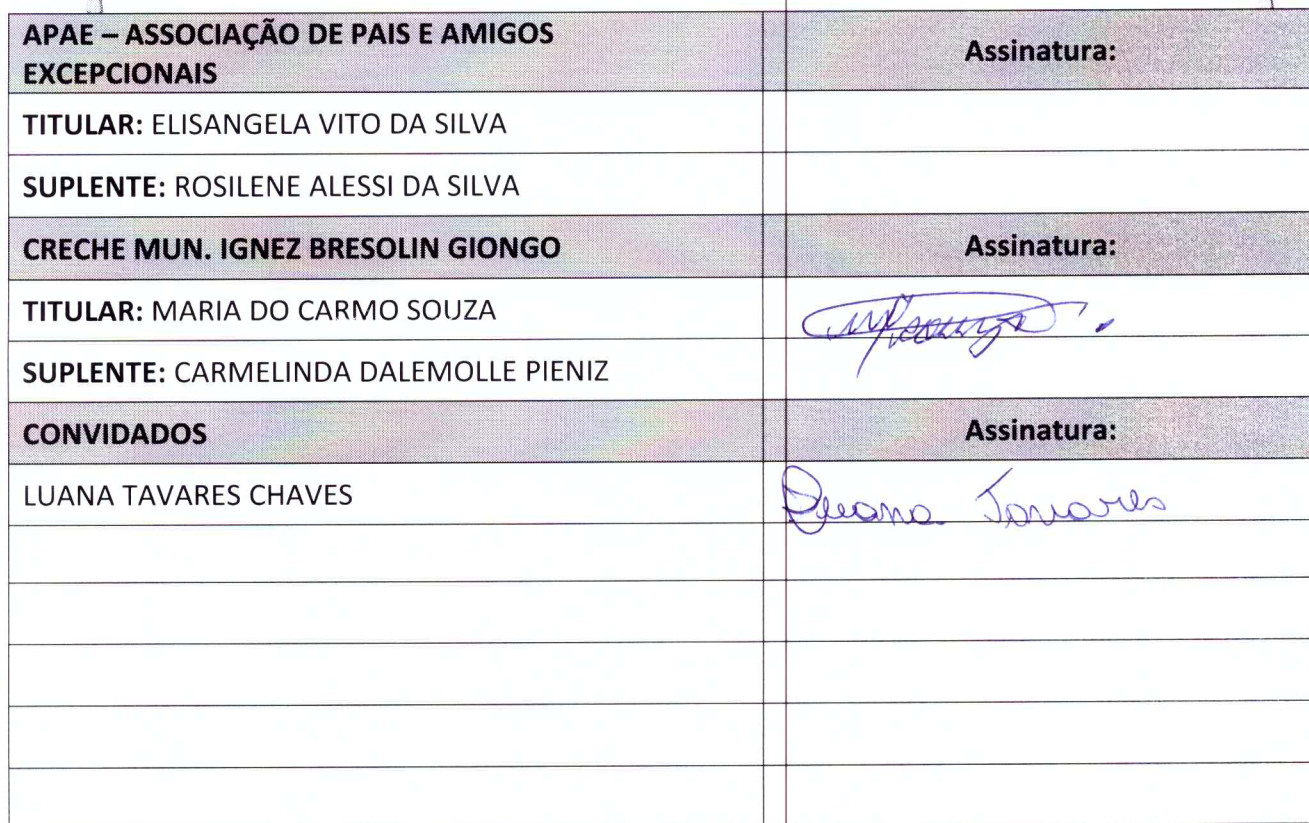 APAE – ASSOCIAÇÃO DE PAIS E AMIGOS
EXCEPCIONAIS
Assinatura:
TITULAR: ELISANGELA VITO DA SILVA
SUPLENTE: ROSILENE ALESSI DA SILVA
CRECHE MUN. IGNEZ BRESOLIN GIONGO
Assinatura:
TITULAR: MARIA DO CARMO SOUZA
SUPLENTE: CARMELINDA DALEMOLLE PIENIZ
CONVIDADOS
Assinatura:
LUANA TAVARES CHAVES
Luana Tavares